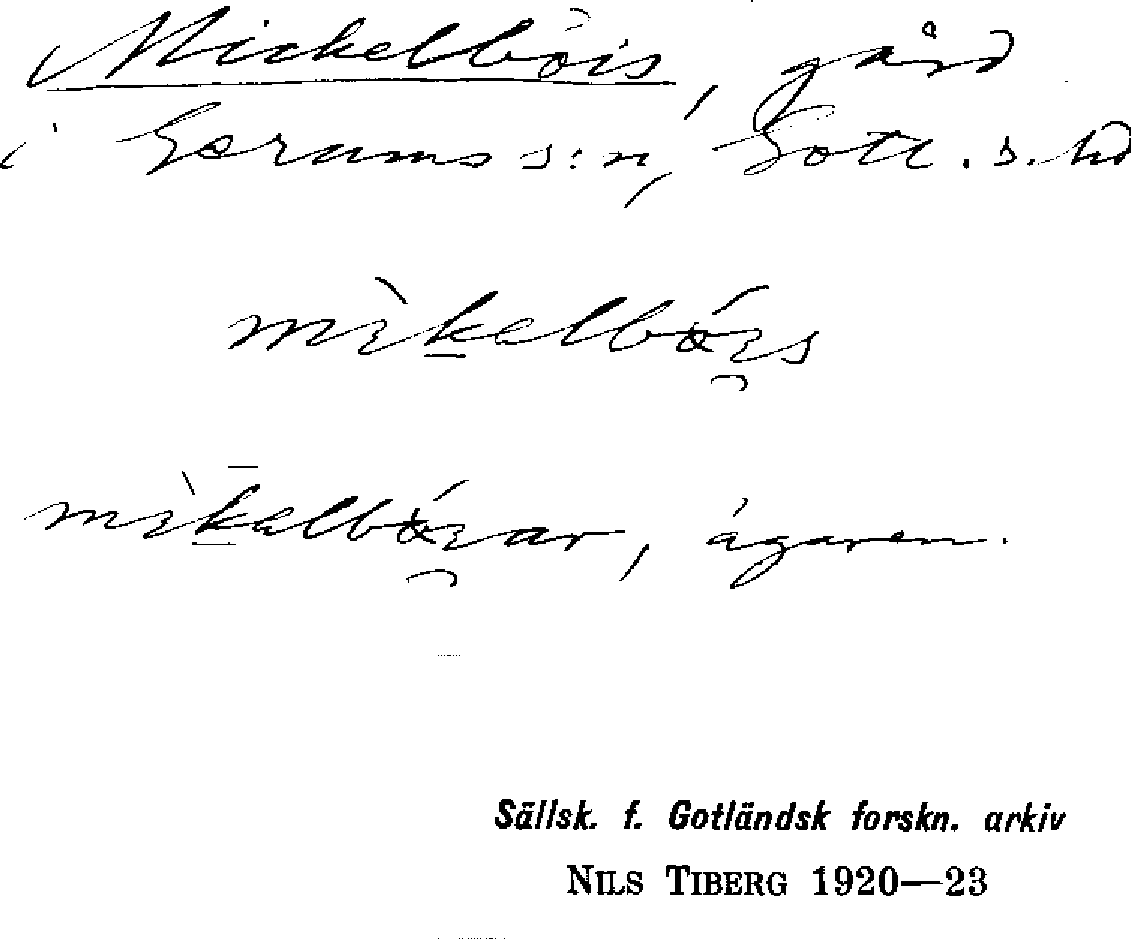 Mickelbŏis, gård
i Gerums s:n, Gotl. s. hd
ägaren.
Sällsk. f. Gotländsk forskn. arkiv
NILS TIBERG 1920—23